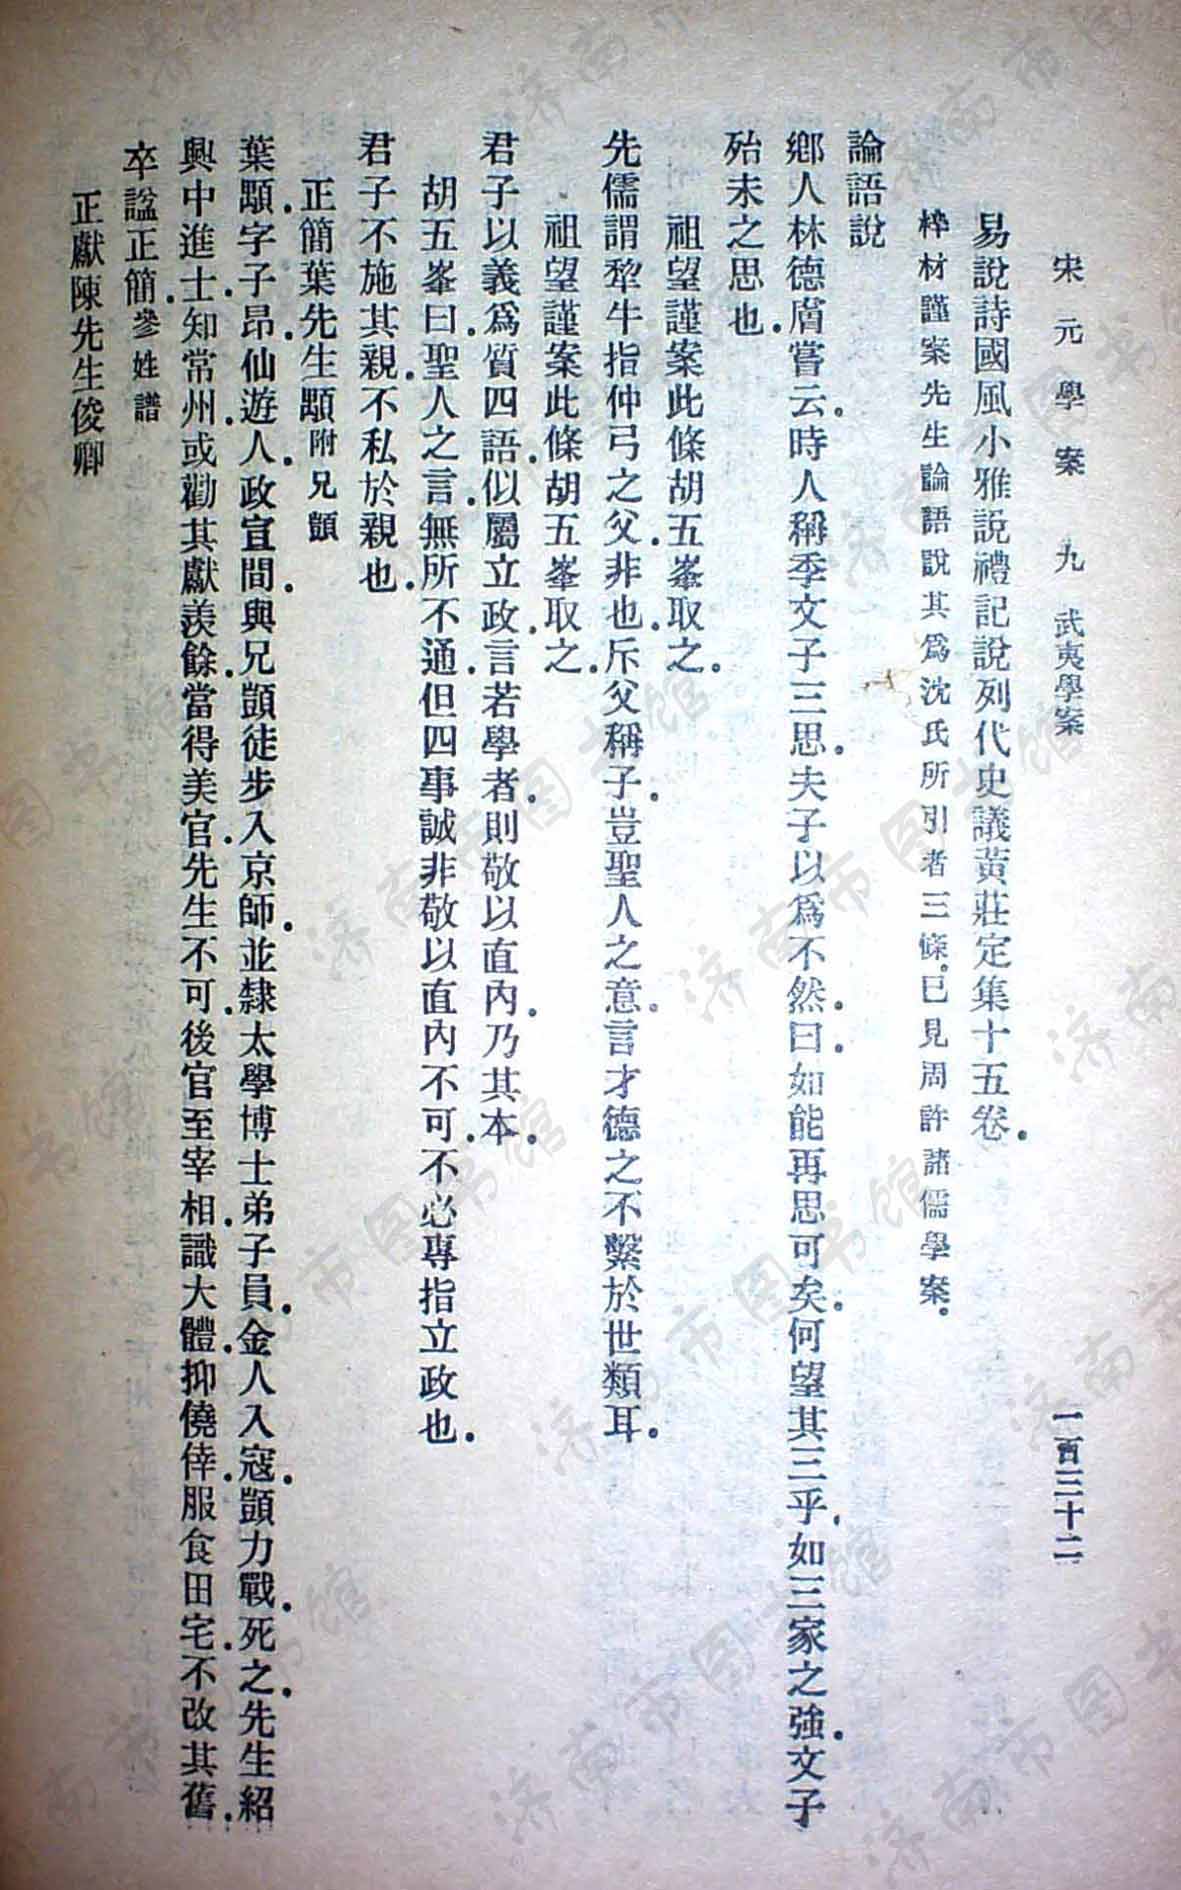 宋元學案 九 武夷學案 一百三十二
易說詩國風小雅說禮記說列代史議黃莊定集十五卷。
梓材謹案先生論語說其爲沈氏所引者三條。已見周許諸儒學案。
論語說
鄉人林德膚嘗云。時人稱季文子三思。夫子以爲不然。曰。如能再思可矣。何望其三乎。如三家之強。文子
殆未之思也。
祖望謹案此條胡五峯取之。
先儒謂犂牛指仲弓之父。非也。斥父稱子。豈聖人之意。言才德之不繫於世類耳。
祖望謹案此條胡五峯取之。
君子以義爲質四語。似屬立政。言若學者。則敬以直內。乃其本。
胡五峯曰。聖人之言。無所不通。但四事誠非敬以直內不可。不必專指立政也。
君子不施其親。不私於親也。
正簡葉先生顒附兄顗
葉顒。字子昂。仙遊人。政宣間。與兄顗徒步入京師。並隸太學博士弟子員。金人入寇。顗力戰。死之。先生紹
興中進士。知常州。或勸其獻羨餘。當得美官。先生不可。後官至宰相。識大體。抑僥倖。服食田宅。不改其舊。
卒諡正簡。參姓譜
正獻陳先生俊卿
济南市图书馆